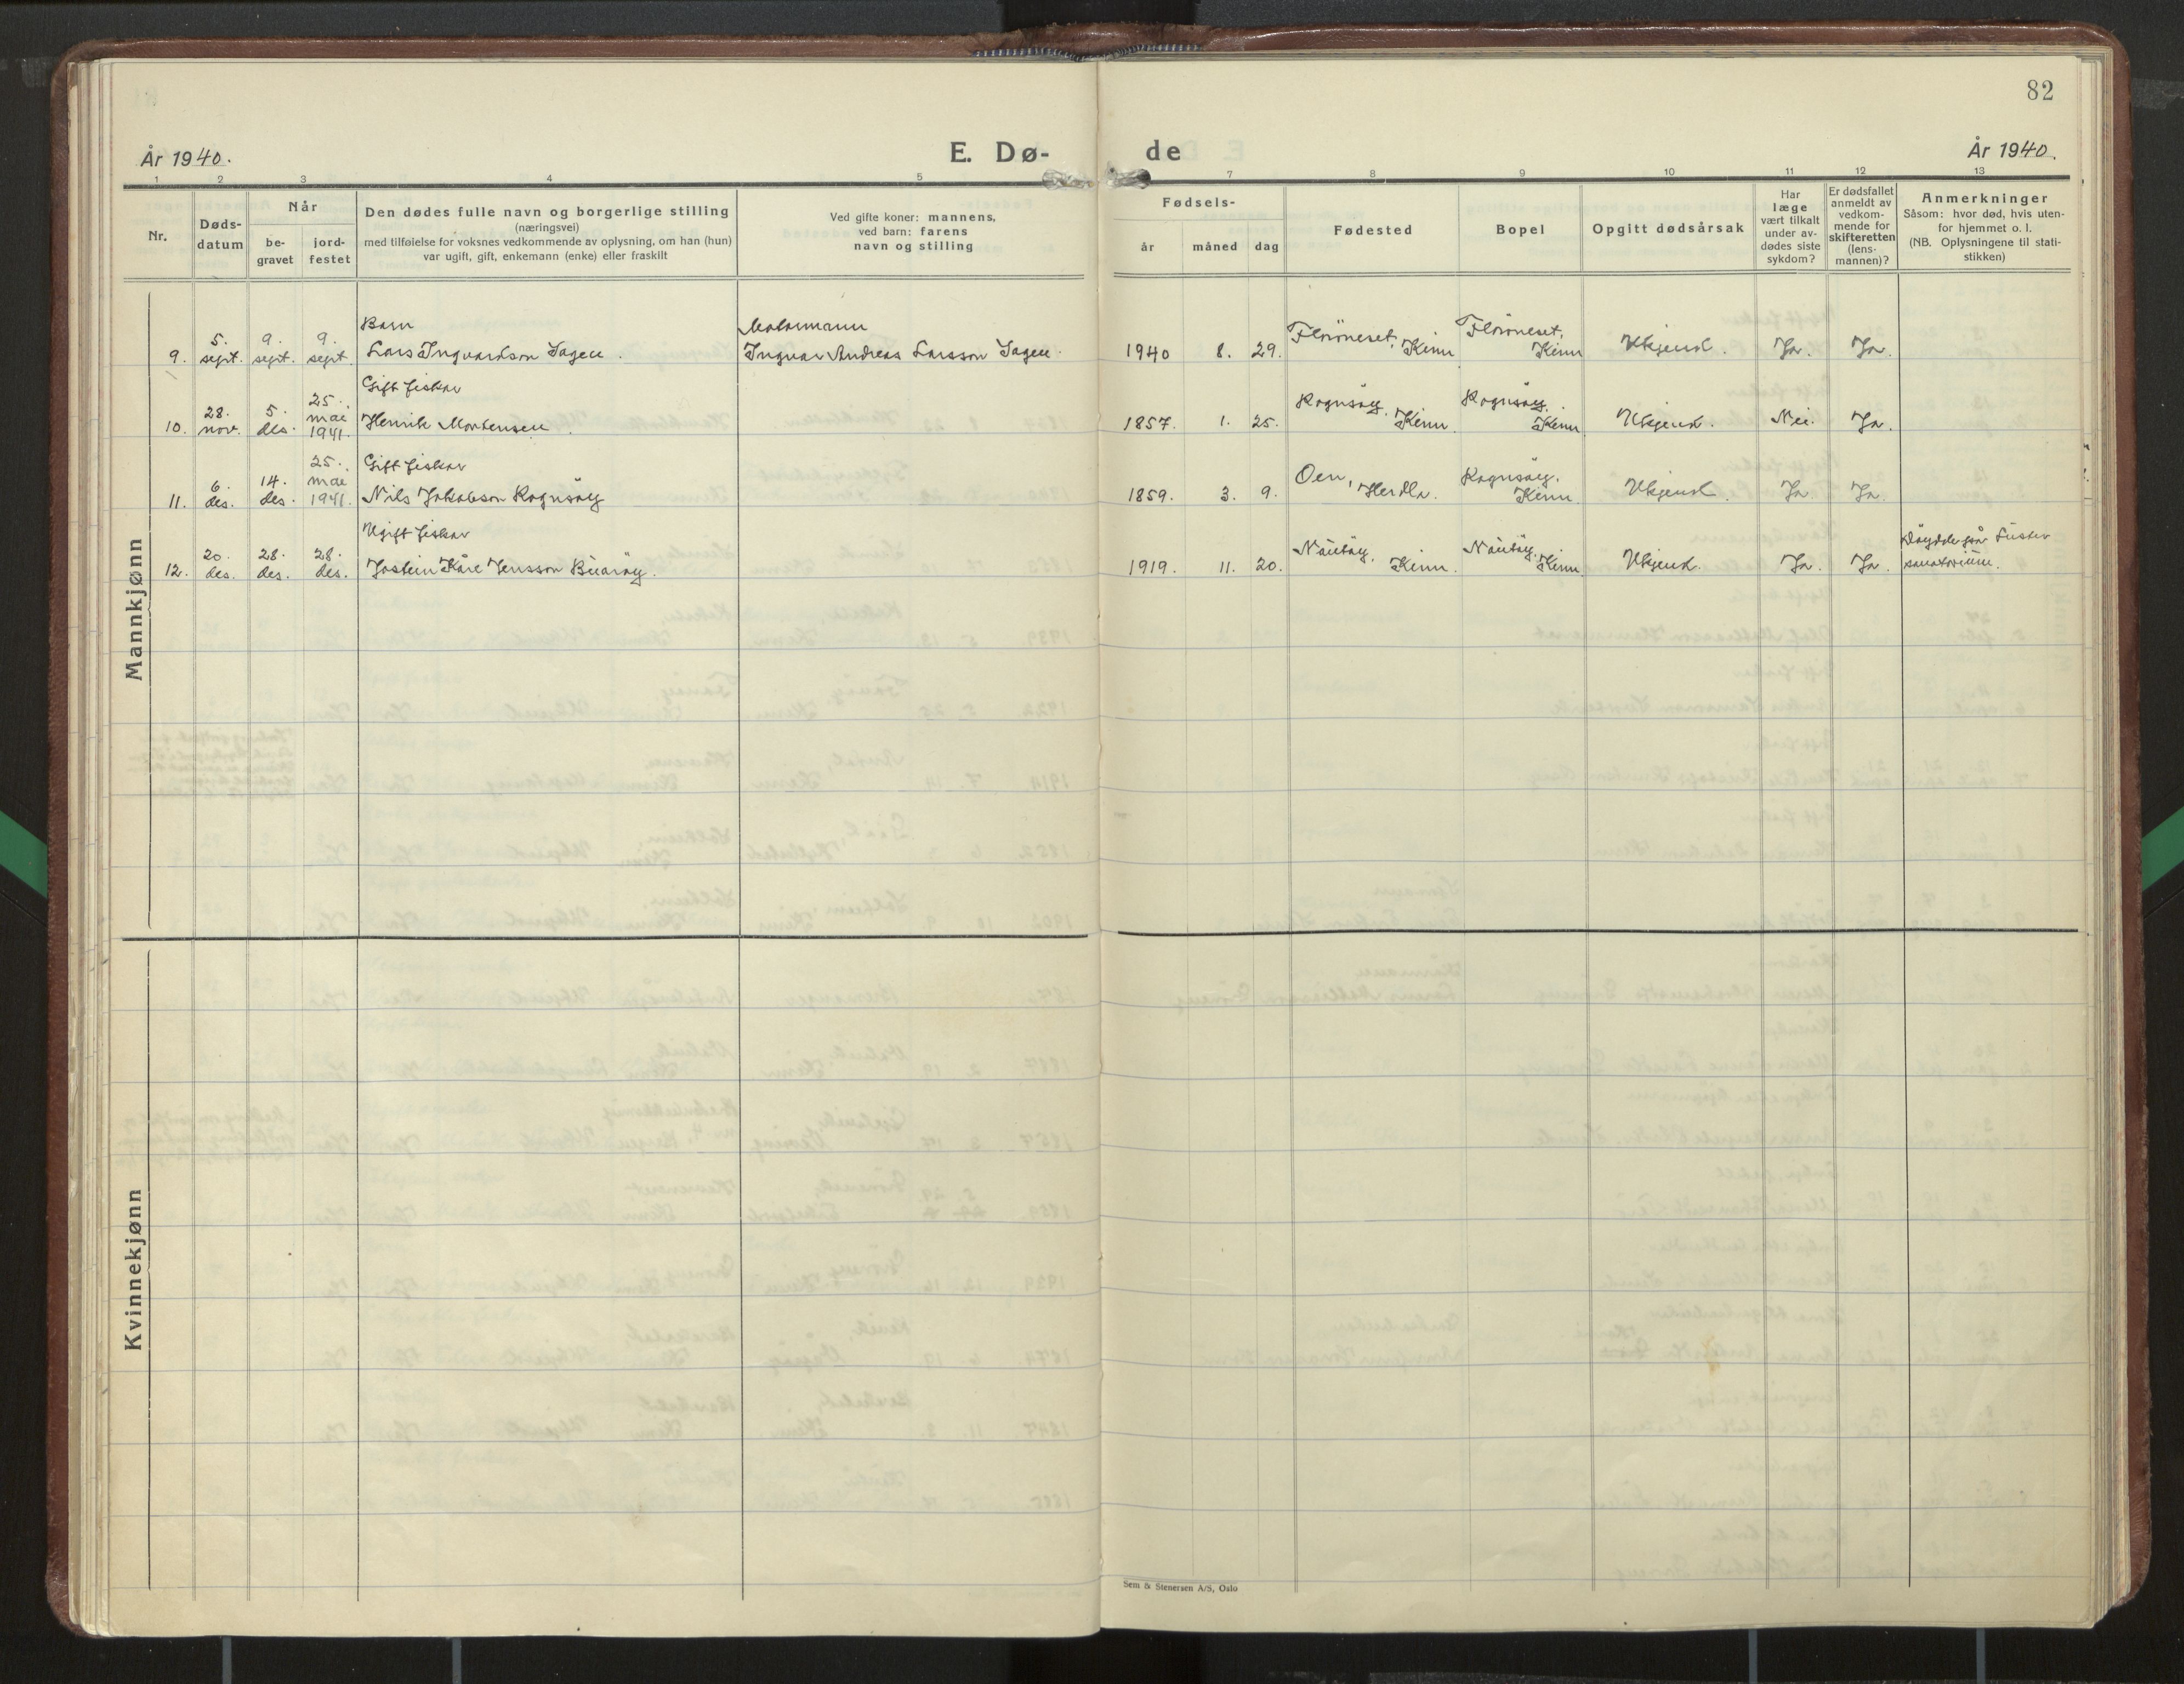 82
År 1940.
E. Dø-
de
År 1940.
1 2 3 4 5 7 8 9 10 11 12 13
Nr.
Døds-
datum
Når
be-
gravet
jord-
festet
Den dødes fulle navn og borgerlige stilling
(næringsvei)
med tilføielse for voksnes vedkommende av oplysning, om han (hun)
var ugift, gift, enkemann (enke) eller fraskilt
Ved gifte koner: mannens,
ved barn: farens
navn og stilling
Fødsels-
år måned dag
Fødested
Bopel
Opgitt dødsårsak
Har
læge
vært tilkalt
under av-
dødes siste
sykdom?
Er dødsfallet
anmeldt av
vedkom-
mende for
skifteretten
(lens-
mannen)?
Anmerkninger
Såsom: hvor død, hvis uten-
for hjemmet o. l.
(NB. Oplysningene til stati-
stikken)
Mannkjønn
Barn
9. 5. sept. 9. sept. 9. sept. Lars Ingvardson Sagen.
Motormann
Ingvar Andreas Larsson Sagen.
1940 8. 29. Florøneset, Kinn Florøneset, Kinn Ukjend. Ja. Ja.
Gift fiskar
10. 28. nov. 5. des. 25. mai 1941. Henrik Mortensen.
1857. 1. 25. Rognsøy, Kinn. Rognsøy, Kinn. Ukjend. Nei. Ja.
Gift fiskar
11. 6. des. 14. des. 25. mai 1941. Nils Jakobson Rognsøy
1859. 3. 9. Oen, Herdla. Rognsøy, Kinn. Ukjend. Ja. Ja.
Ugift fiskar
12. 20. des. 28. des. 28. des. Jostein Kåre Jensson Buarøy.
1919. 11. 20. Kinn. Kinn. Ukjend. Ja. Ja. Døydde på Luster
sanatorium.
Kvinnekjønn
Sem & Stenersen A/S, Oslo